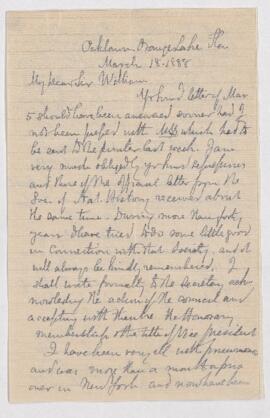 Oaklawn, Orange Lake Fla
March 18. 1888
My Dear Sir William
Yr kind letter of Mar
5 should have been answered sooner had I
not been pressed with MSS which had to
be sent to the printer last week. I am
very much obliged for your kind
and that of the official letter from the
Soc. of Nat. History received about
the same time. During more than forty
years I have tried to do some little good
in connection with that Society, and it
will always be kindly remembered. I
shall write formally to the Secretary, ack-
nowledging the action of the council and
accepting with thanks the Honorary
membership & the title of Vice president
I have been very ill with pneumonia
and was more than a month
over in New York and now have been